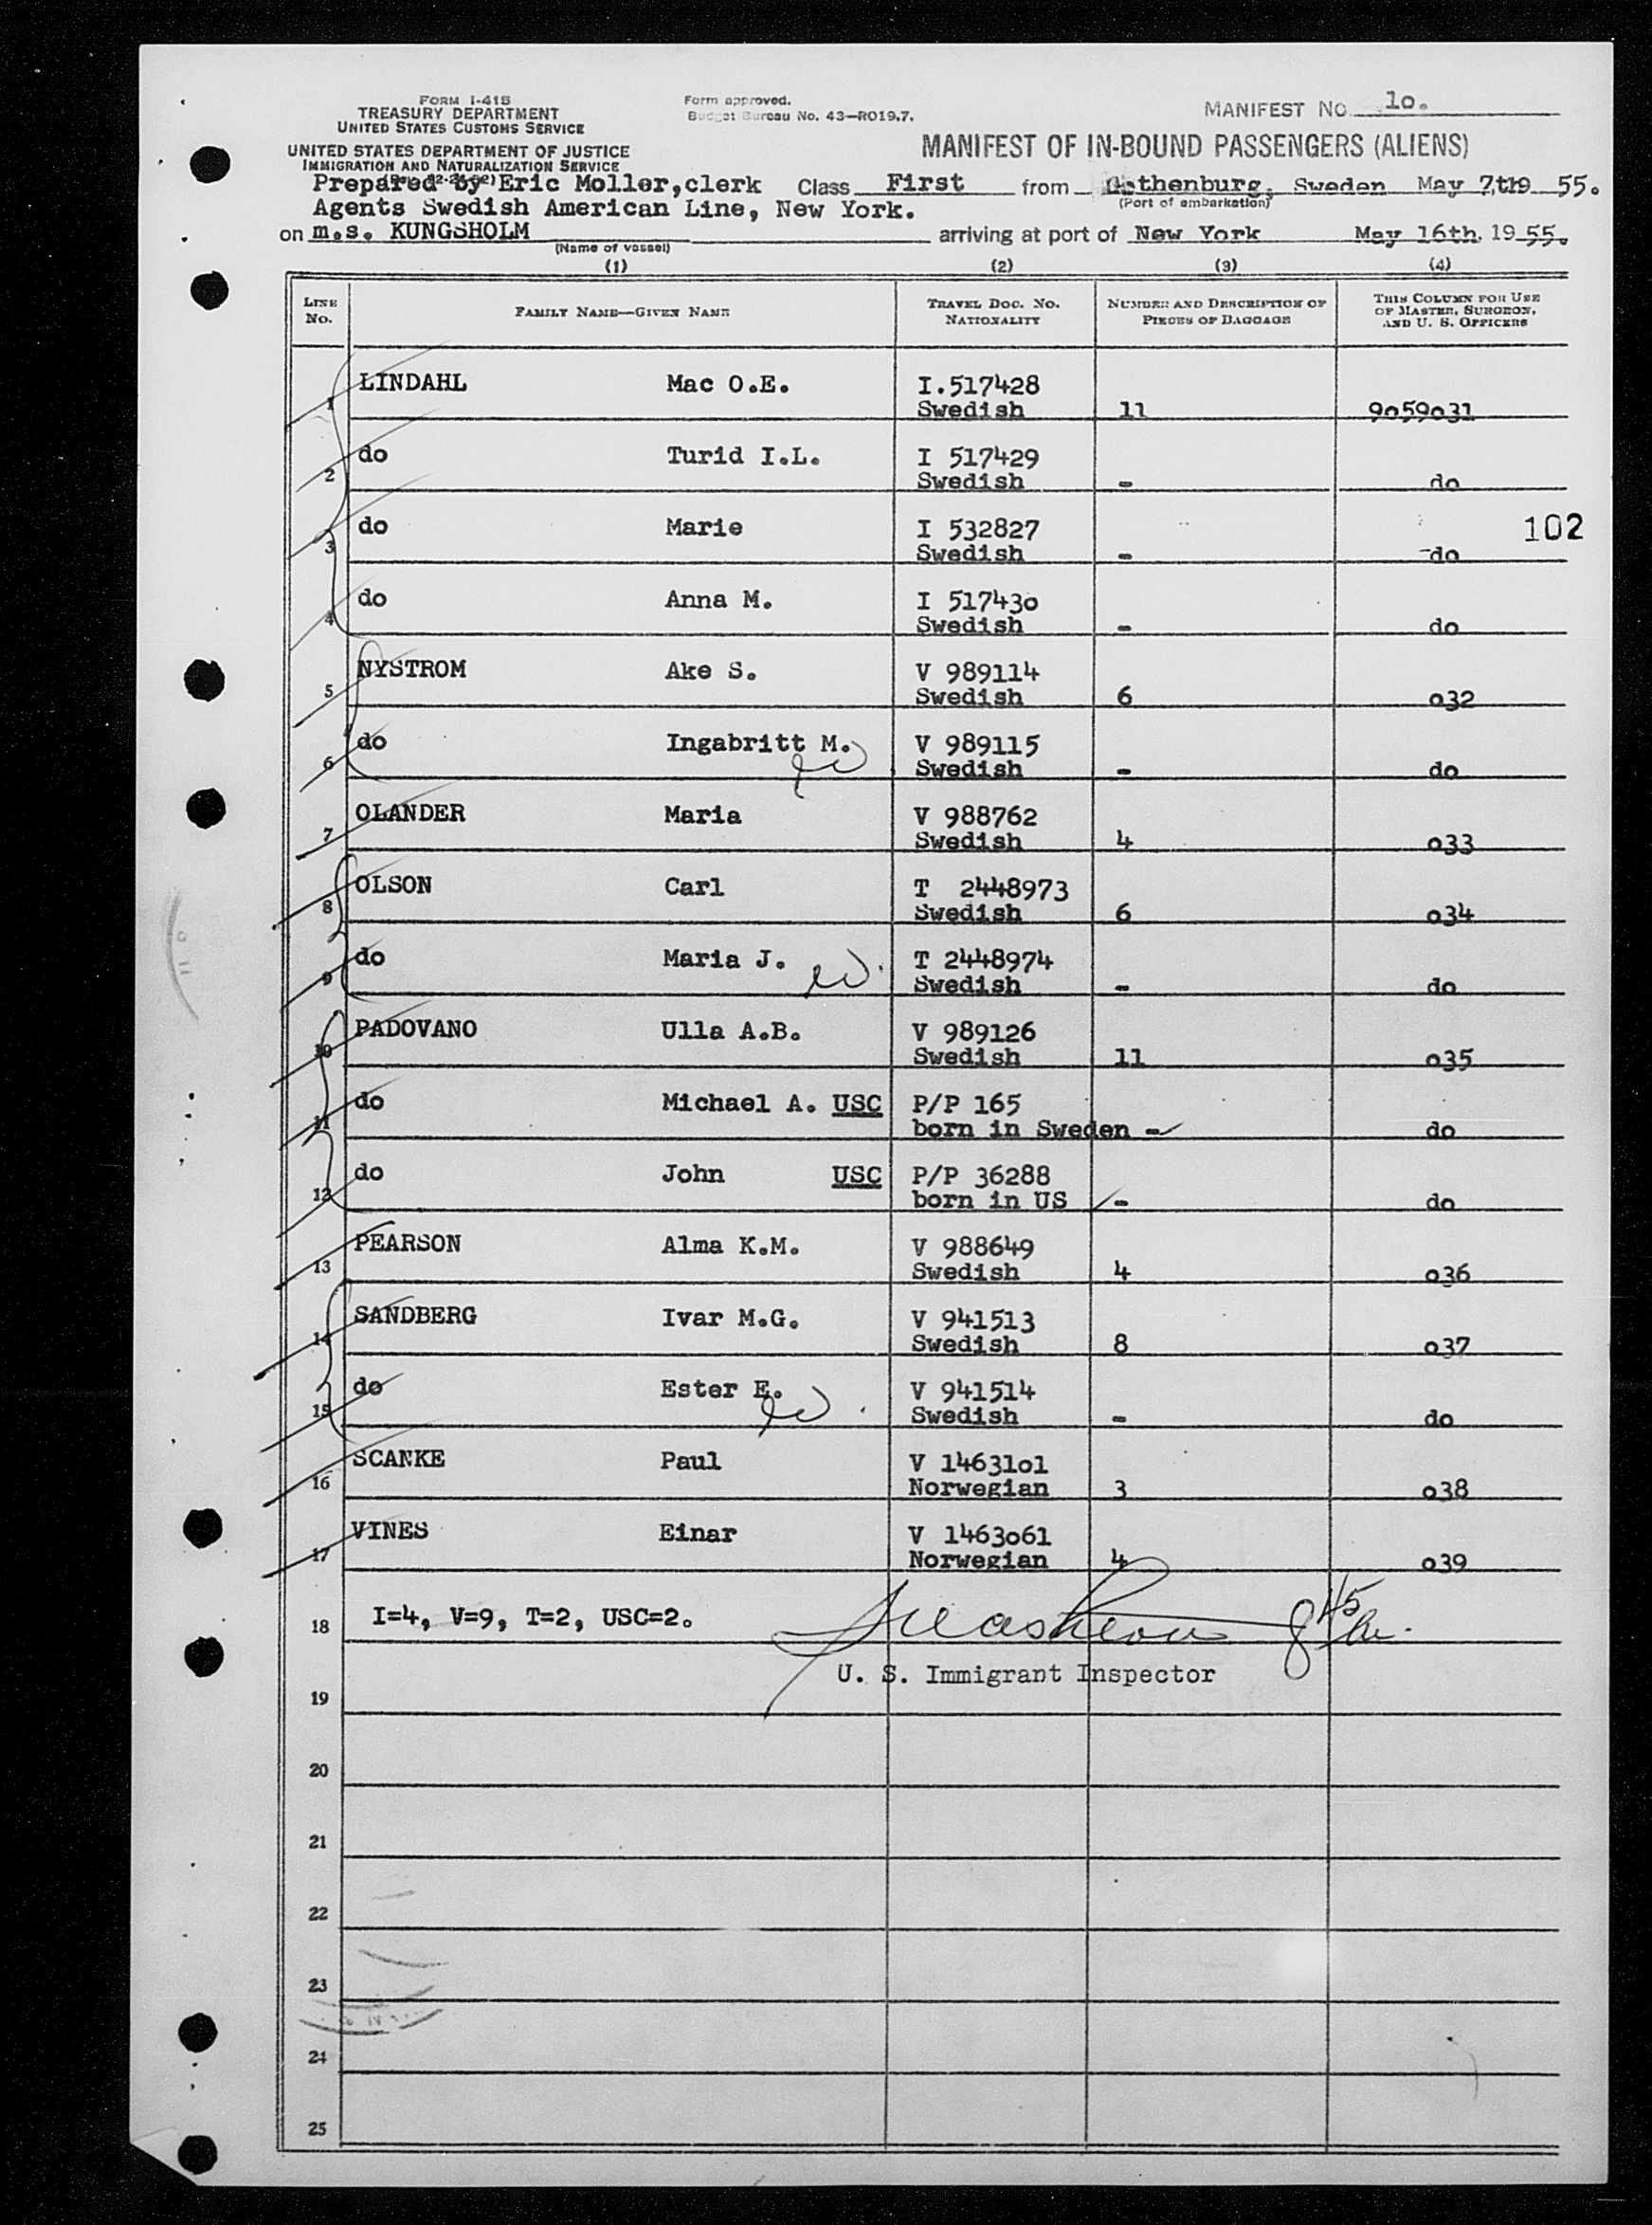 FORM I-418
TREASURY DEPARTMENT
UNITED STATES CUSTOMS SERVICE
UNITED STATES DEPARTMENT OF JUSTICE
IMMIGRATION AND NATURALIZATION SERVICE
Form approved.
Budget Bureau No. 43—RO19.7.
MANIFEST NO. 1o.
MANIFEST OF IN-BOUND PASSENGERS (ALIENS)
Prepared by Eric Moller, clerk Class First from Gothenburg, Sweden May 7th 19 55.
Agents Swedish American Line, New York. (Port of embarkation)
on m.s. KUNGSHOLM arriving at port of New York May 16th, 19 55.
(Name of vessel)
(1) (2) (3) (4)
LINE NO. FAMILY NAME—GIVEN NAME TRAVEL DOC. NO. NATIONALITY NUMBER AND DESCRIPTION OF PIECES OF BAGGAGE THIS COLUMN FOR USE OF MASTER, SURGEON, AND U. S. OFFICERS
1 LINDAHL Mac O.E. I.517428
Swedish 11 9o59o31
2 do Turid I.L. I 517429
Swedish - do
3 do Marie I 532827 102
Swedish - do
4 do Anna M. I 51743o
Swedish - do
5 NYSTROM Ake S. V 989114
Swedish 6 o32
6 do Ingabritt M. V 989115
Swedish - do
7 OLANDER Maria V 988762
Swedish 4 o33
8 OLSON Carl T 2448973
Swedish 6 o34
9 do Maria J. T 2448974
Swedish - do
10 PADOVANO Ulla A.B. V 989126
Swedish 11 o35
11 do Michael A. USC P/P 165
born in Sweden - do
12 do John USC P/P 36288
born in US - do
13 PEARSON Alma K.M. V 988649
Swedish 4 o36
14 SANDBERG Ivar M.G. V 941513
Swedish 8 o37
15 do Ester E. V 941514
Swedish - do
16 SCANKE Paul V 14631o1
Norwegian 3 o38
17 VINES Einar V 1463o61
Norwegian 4 o39
18 I=4, V=9, T=2, USC=2.
U. S. Immigrant Inspector
19
20
21
22
23
24
25